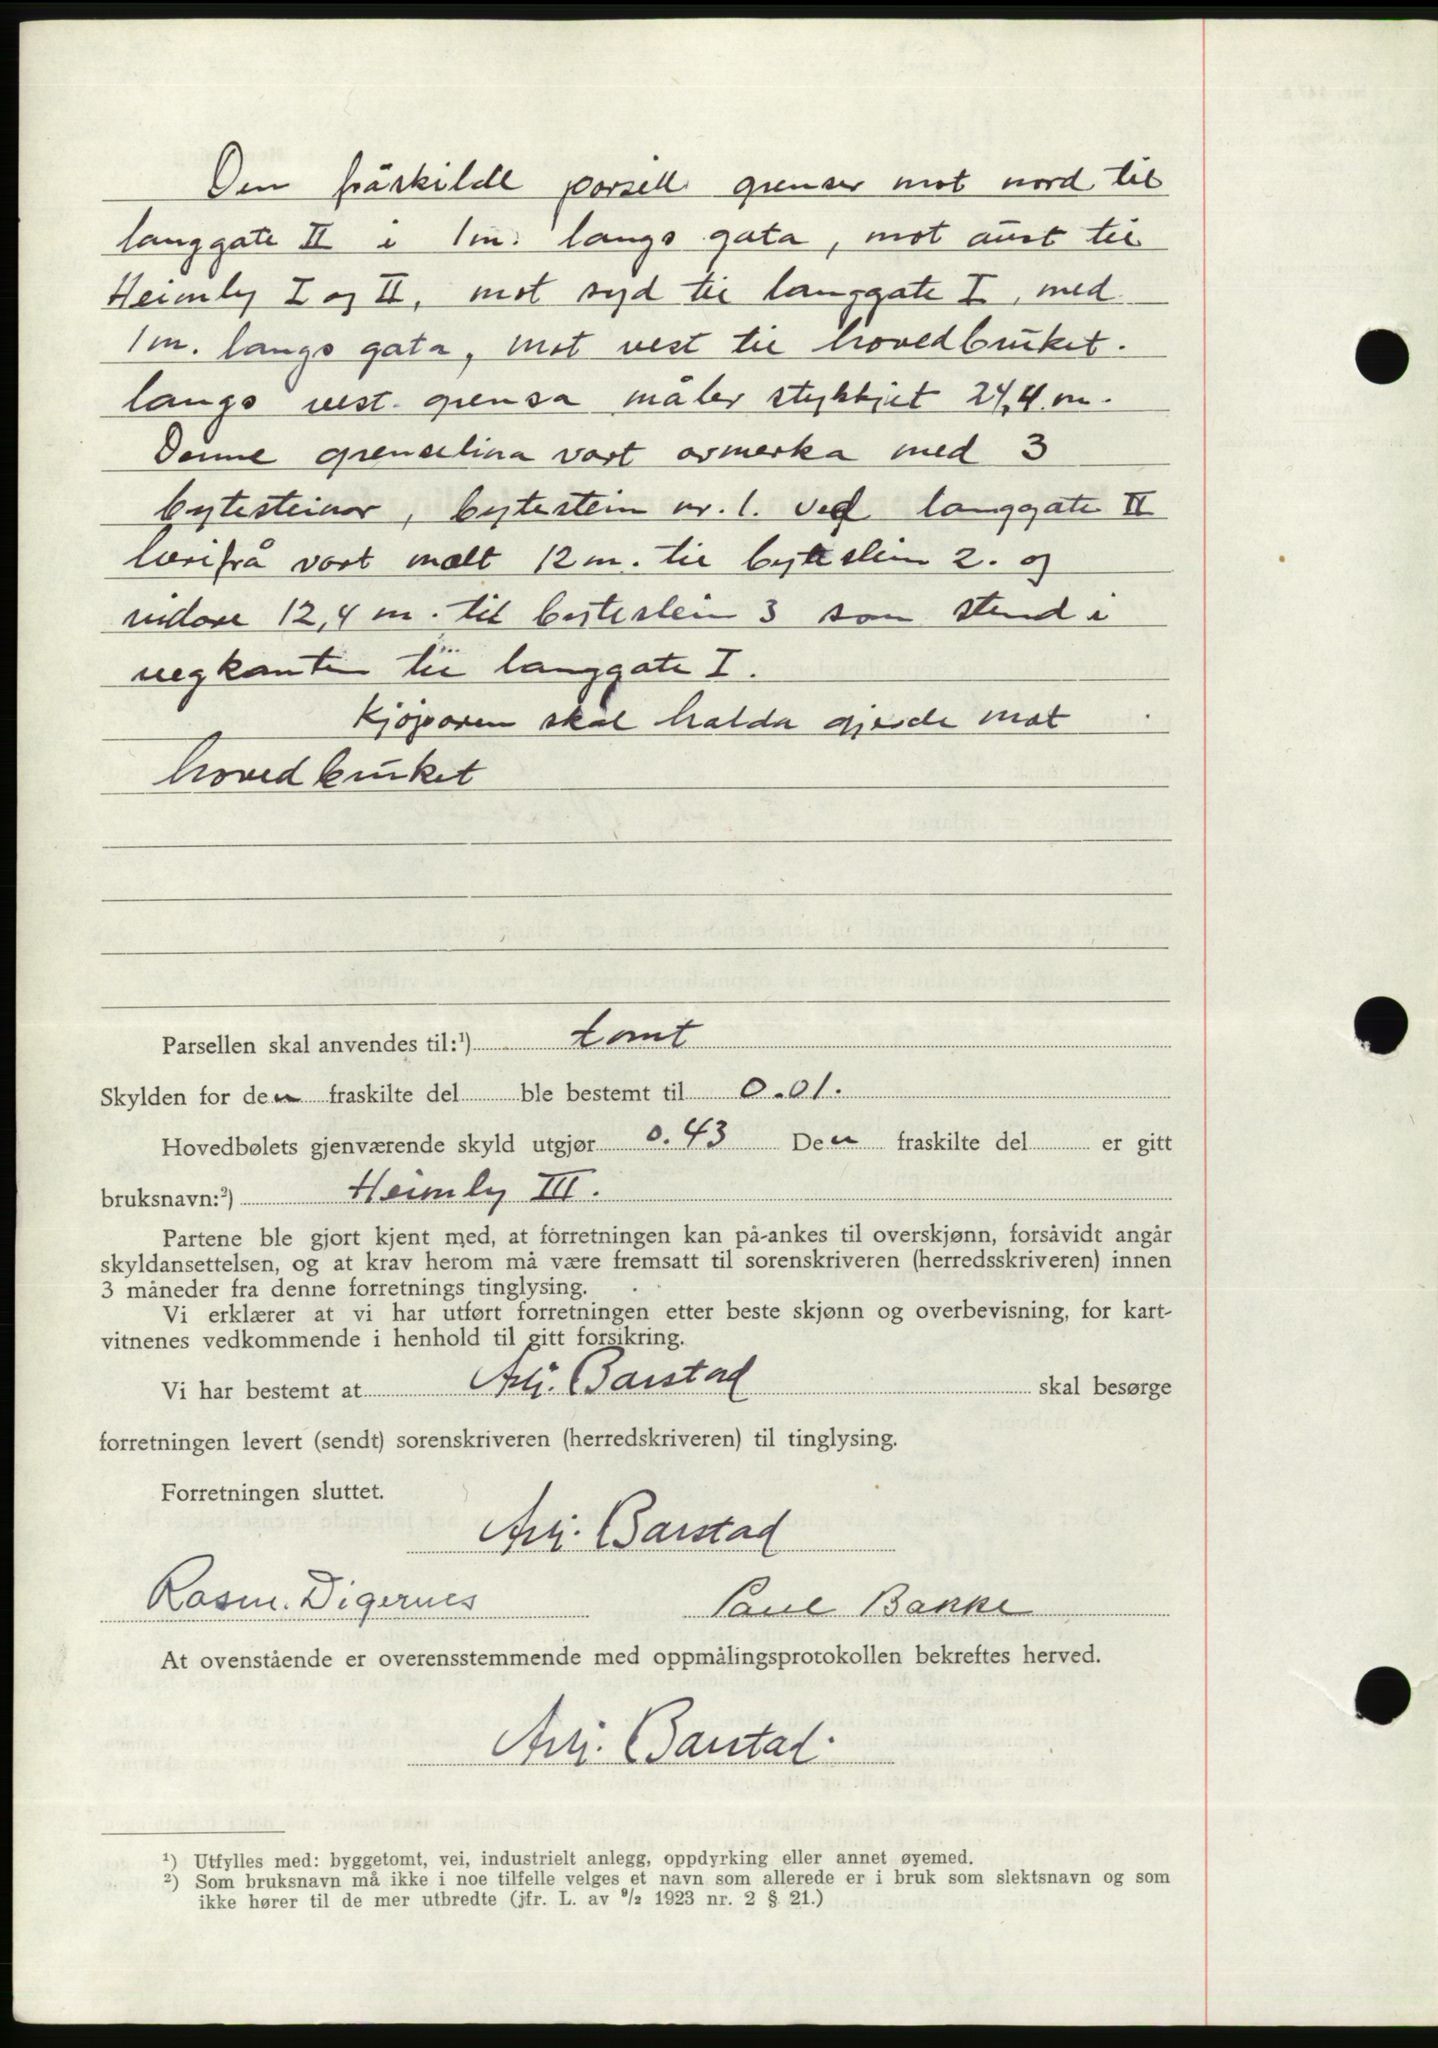 Den fråskilde parsell grenser mot nord til
langgate II i 1 m. langs gata, mot aust til
Heimly I og II, mot syd til langgate I, med
1 m. langs gata, mot vest til hovedbruket.
langs vest grensa måler stykkjet 24,4 m.
Denne grenselina vart avmerka med 3
bytesteinar, bytestein nr. 1. ved langgate II
herifrå vart mælt 12 m. til bytestein 2. og
vidare 12,4 m. til bytestein 3 som stend i
vegkanten til langgate I.
Kjøparen skal halda gjerde mot
hovedbruket
Parsellen skal anvendes til:¹) tomt
Skylden for den fraskilte del ble bestemt til 0.01.
Hovedbølets gjenværende skyld utgjør 0.43 Den fraskilte del er gitt
bruksnavn:²) Heimly III.
Partene ble gjort kjent med, at forretningen kan på-ankes til overskjønn, forsåvidt angår
skyldansettelsen, og at krav herom må være fremsatt til sorenskriveren (herredsskriveren) innen
3 måneder fra denne forretnings tinglysing.
Vi erklærer at vi har utført forretningen etter beste skjønn og overbevisning, for kart-
vitnenes vedkommende i henhold til gitt forsikring.
Vi har bestemt at Barstad skal besørge
forretningen levert (sendt) sorenskriveren (herredskriveren) til tinglysing.
Forretningen sluttet.
Barstad
Rasm. Digernes Paul Bakke
At ovenstående er overensstemmende med oppmålingsprotokollen bekreftes herved.
Barstad.
¹) Utfylles med: byggetomt, vei, industrielt anlegg, oppdyrking eller annet øyemed.
²) Som bruksnavn må ikke i noe tilfelle velges et navn som allerede er i bruk som slektsnavn og som
ikke hører til de mer utbredte (jfr. L. av ⁹/₂ 1923 nr. 2 § 21.)